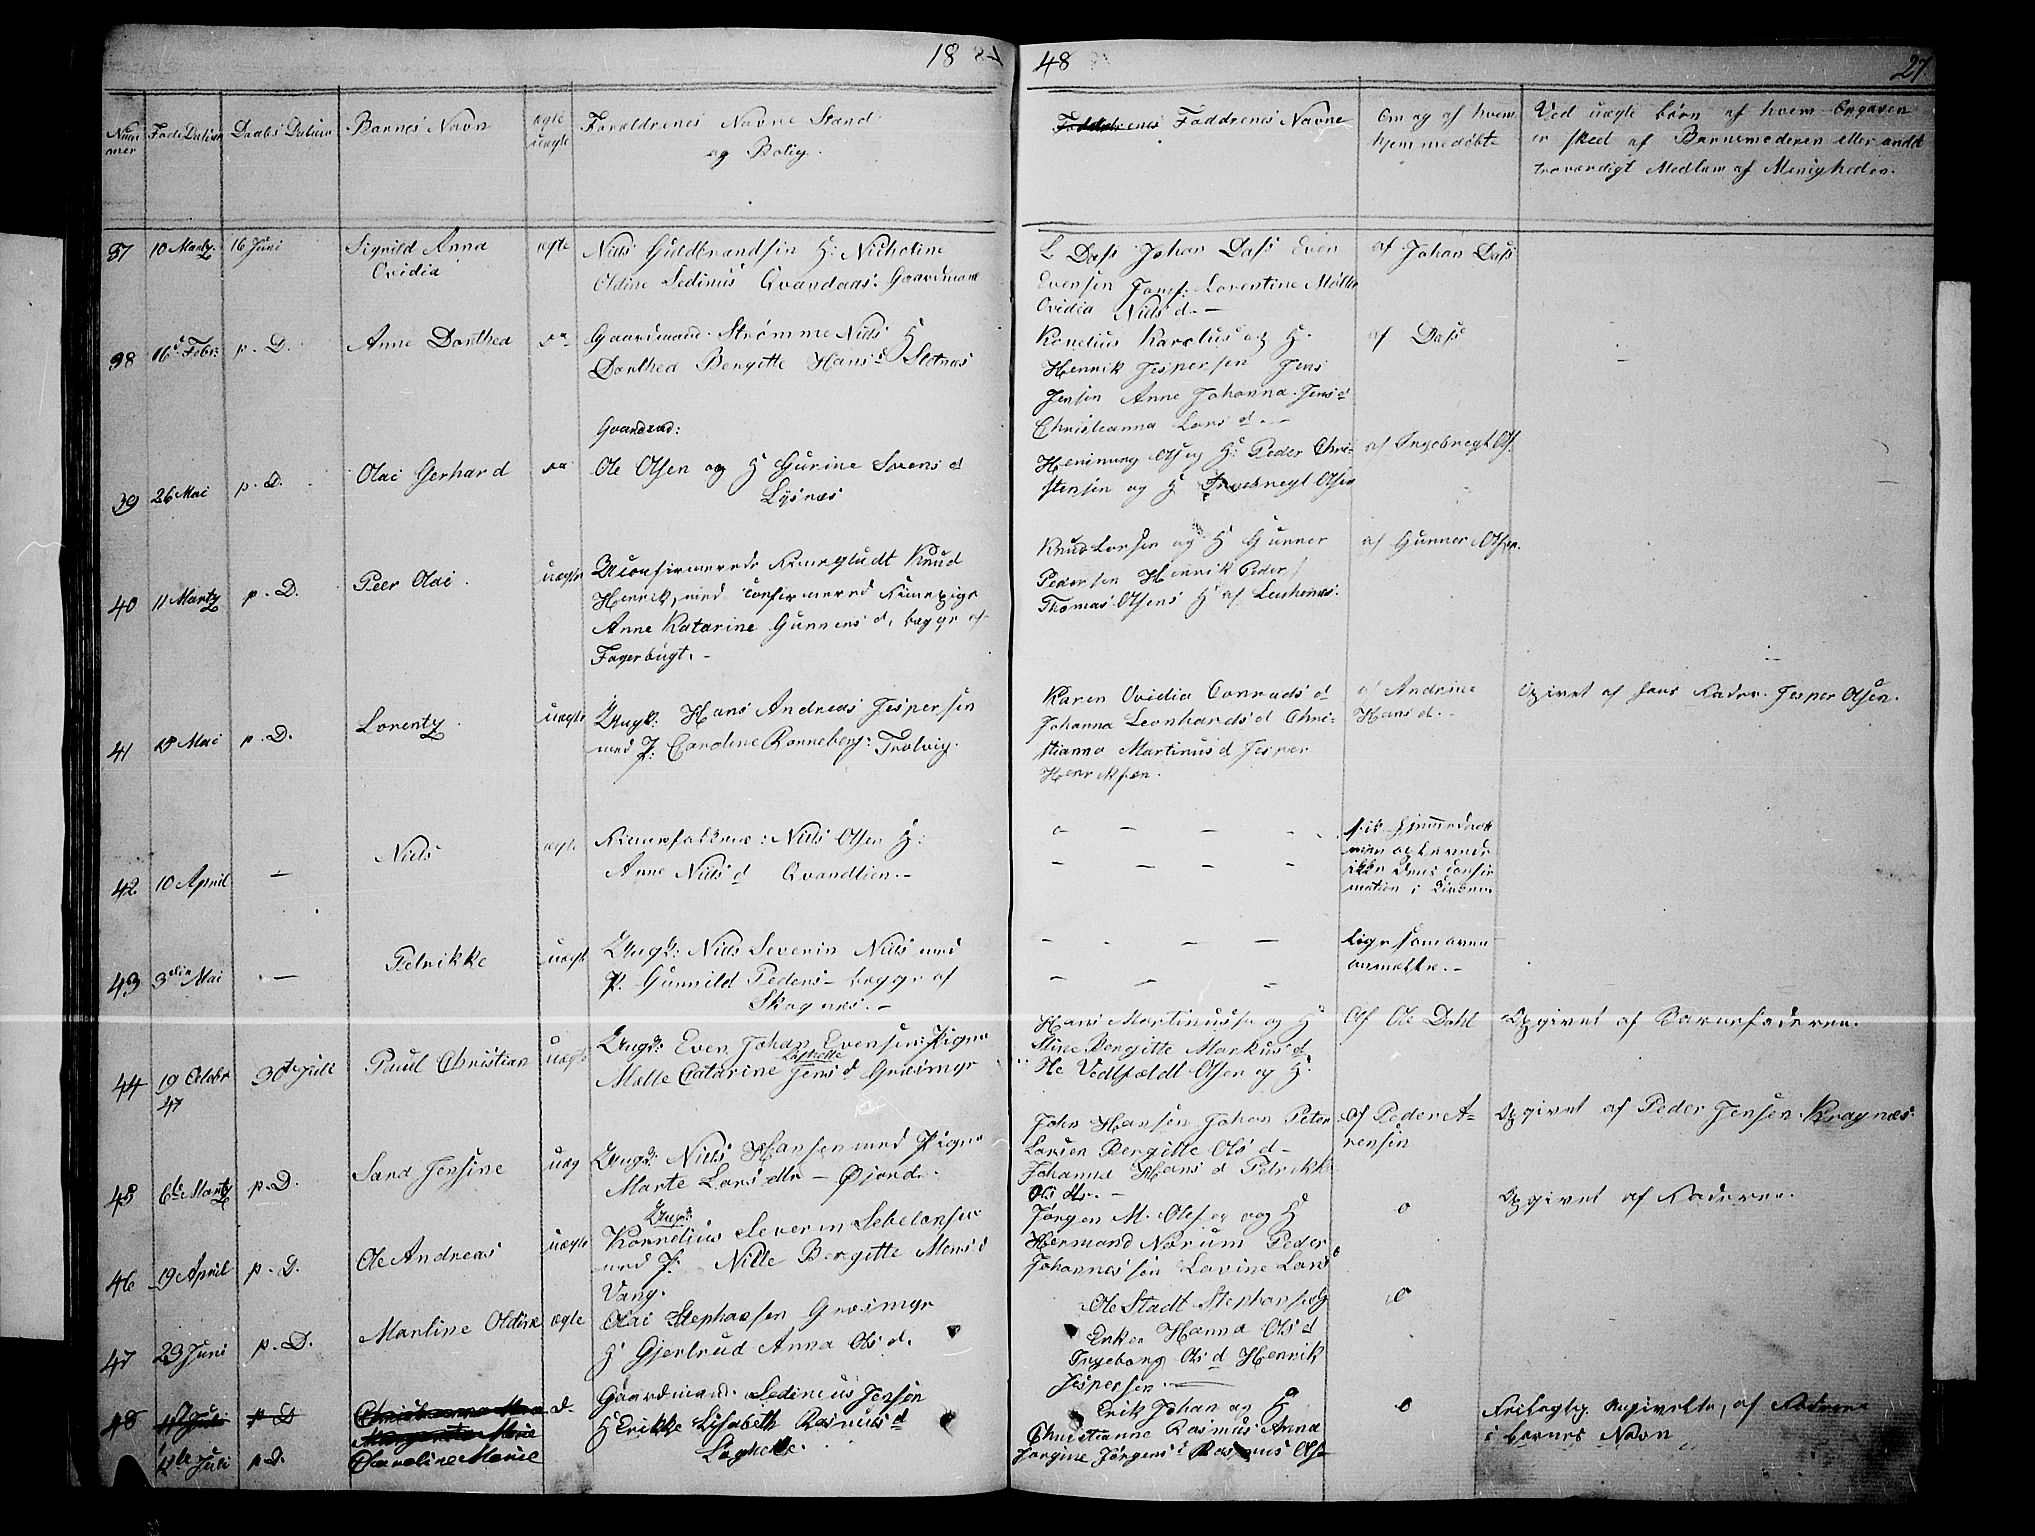 18
48
27
Num
mer
Føde Datum
Daabs Datum
Barnes Navn
ægte
uægte
Forældrenes Navne Stand
og Bolig.
Faddrenes Navne
Om og af hvem
hjemmedøbt
Ved uægte børn af hvem Opgaven
er skeed af Barnemoderen eller andet
troværdigt Medlem af Menigheden.
37 10 Martz 16 Juni
Signild Anna
Ovidia
ægte
Niels Guldbrandsen H: Nicholine
Oldine Sedinus Qvandaas: Gaardmand
C Dass Johan Dass Even
Evensen Jomf: Lorentine Mølle
Ovidia Niels d. -
af Johan Dass
38 16 Febr: p. D.
Anne Dorthea
Gaardmand Strømme Niels H
Dorthea Bergitte Hans d Stønæs
Kornelius Karolus og H.
Henrik Jespersen Jens
Jensen Anne Johanna Jens d
Christianna Lars d. -
af Dass
39 26 Mai p. D.
Olai Gerhard
Gaardmd:
Ole Olsen og H Gurine Sørens d
Lysnæs
Henning Ols og H: Peder Chri-
stensen og H Ingebregt Olsen
af Ingebregt Ols.
40 11 Martz p. D.
Peer Olai
uægte
Uconfirmerede Finnegludt Knud
Henrik, med confirmered Finnepige
Anne Katarine Gunners d, begge af
Fagerbugt. -
Knud Larsen og H Gunner
Pedersen Henrik Peders
Thomas Olsens H af Lenkenæs.
af Gunner Olsen.
41 15 Mai p. D.
Lorentz
uægte
Ungk: Hans Andreas Jespersen
med P: Caroline Ronneberg: Trolvig.
Karen Ovidia Conrads d
Johanna Leonhards d Chri-
stianna Martinus d Jesper
Henriksen.
af Andrine
Hans d. -
Opgivet af hans Fader Jesper Olsen.
42 10 April -
Niels
ægte
Finnefolkene: Niels Olsen H:
Anne Niels d Qvandlien. -
fik hjemmedaab
ikke Dens Confir
mation i Kirken
43 3die Mai -
Petrikke
uægt
Ungk: Niels Severin Niels med
P. Gunnild Peders - begge af
Skognæs. -
Ligesom oven
anmelte. -
44 19 Octobr
47
30te Juli
Paul Christian
uægte
Ungk: Even Johan Evensen: Pigen
Malle Catarine Jens d Græsmyr
Hans Martinussen og H
Stine Bergitte Markus d
Ole Vedtfældt Olsen og H.
Af Ole Dahl
Opgivet af Barnefaderen.
45 6te Martz p. D.
Sara Jensine
uæg
Ungk: Niels Hansen med Pigen
Marte Lars dtr - Øjord.
John Hansen Johan Peter
Larsen Bergitte Ols d -
Johanna Hans d Petrikke
Ols dtr. -
Af Peder A-
rensin
Opgivet af Peder Jensen Kragnæs
46 19 April p. D.
Ole Andreas
uægte
Ungk:
Kornelius Severin Sebelonsen
med P. Nille Bergitte Mons d
Vang.
Jørgen M. Olsen og H
Hermand Norum Peder
Johannessen Lovine Lars d
o
Opgivet af Faderen.
47 23 Juni p. D.
Martine Oldine
ægte
Olai Stephansen Græsmyr
H Gjertrud Anna Ols d.
Ole Stadt Stephansen
Enken Hanna Ols d
Ingeborg Ols d Henrik
Jespersen
o
48 p D
12te Juli p. D.
Caroline Marie
Gaardmand Sedinius Jensen
H Erikke Lisabeth Rasmus d
Erik Johan og H
Christianne Rasmus Anna
Jørgine Jørgens d Rasmus Ols
o
Feilagtig Angivelse, af Faderen
i barnes Navn